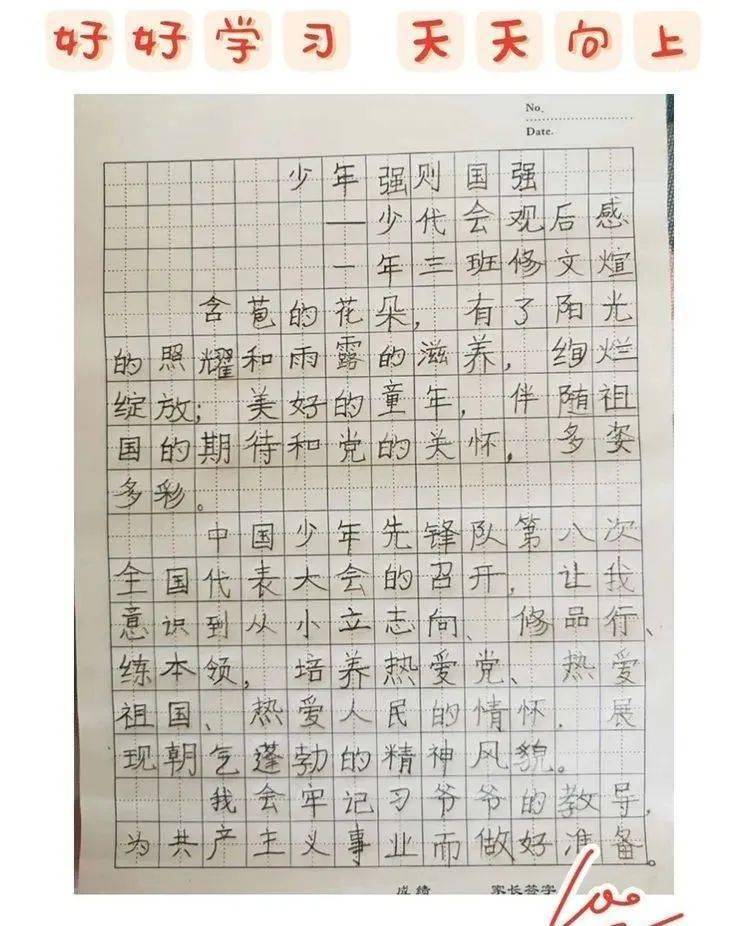 好好学习 天天向上
No.
Date.
少年强则国强
——少代会观后感
一年三班修文煊
含苞的花朵，有了阳光
的照耀和雨露的滋养，绚烂
绽放；美好的童年，伴随祖
国的期待和党的关怀，多姿
多彩。
中国少年先锋队第八次
全国代表大会的召开，让我
意识到从小立志向、修品行、
练本领，培养热爱党、热爱
祖国、热爱人民的情怀，展
现朝气蓬勃的精神风貌。
我会牢记习爷爷的教导，
为共产主义事业而做好准备。
成绩 家长签字
100